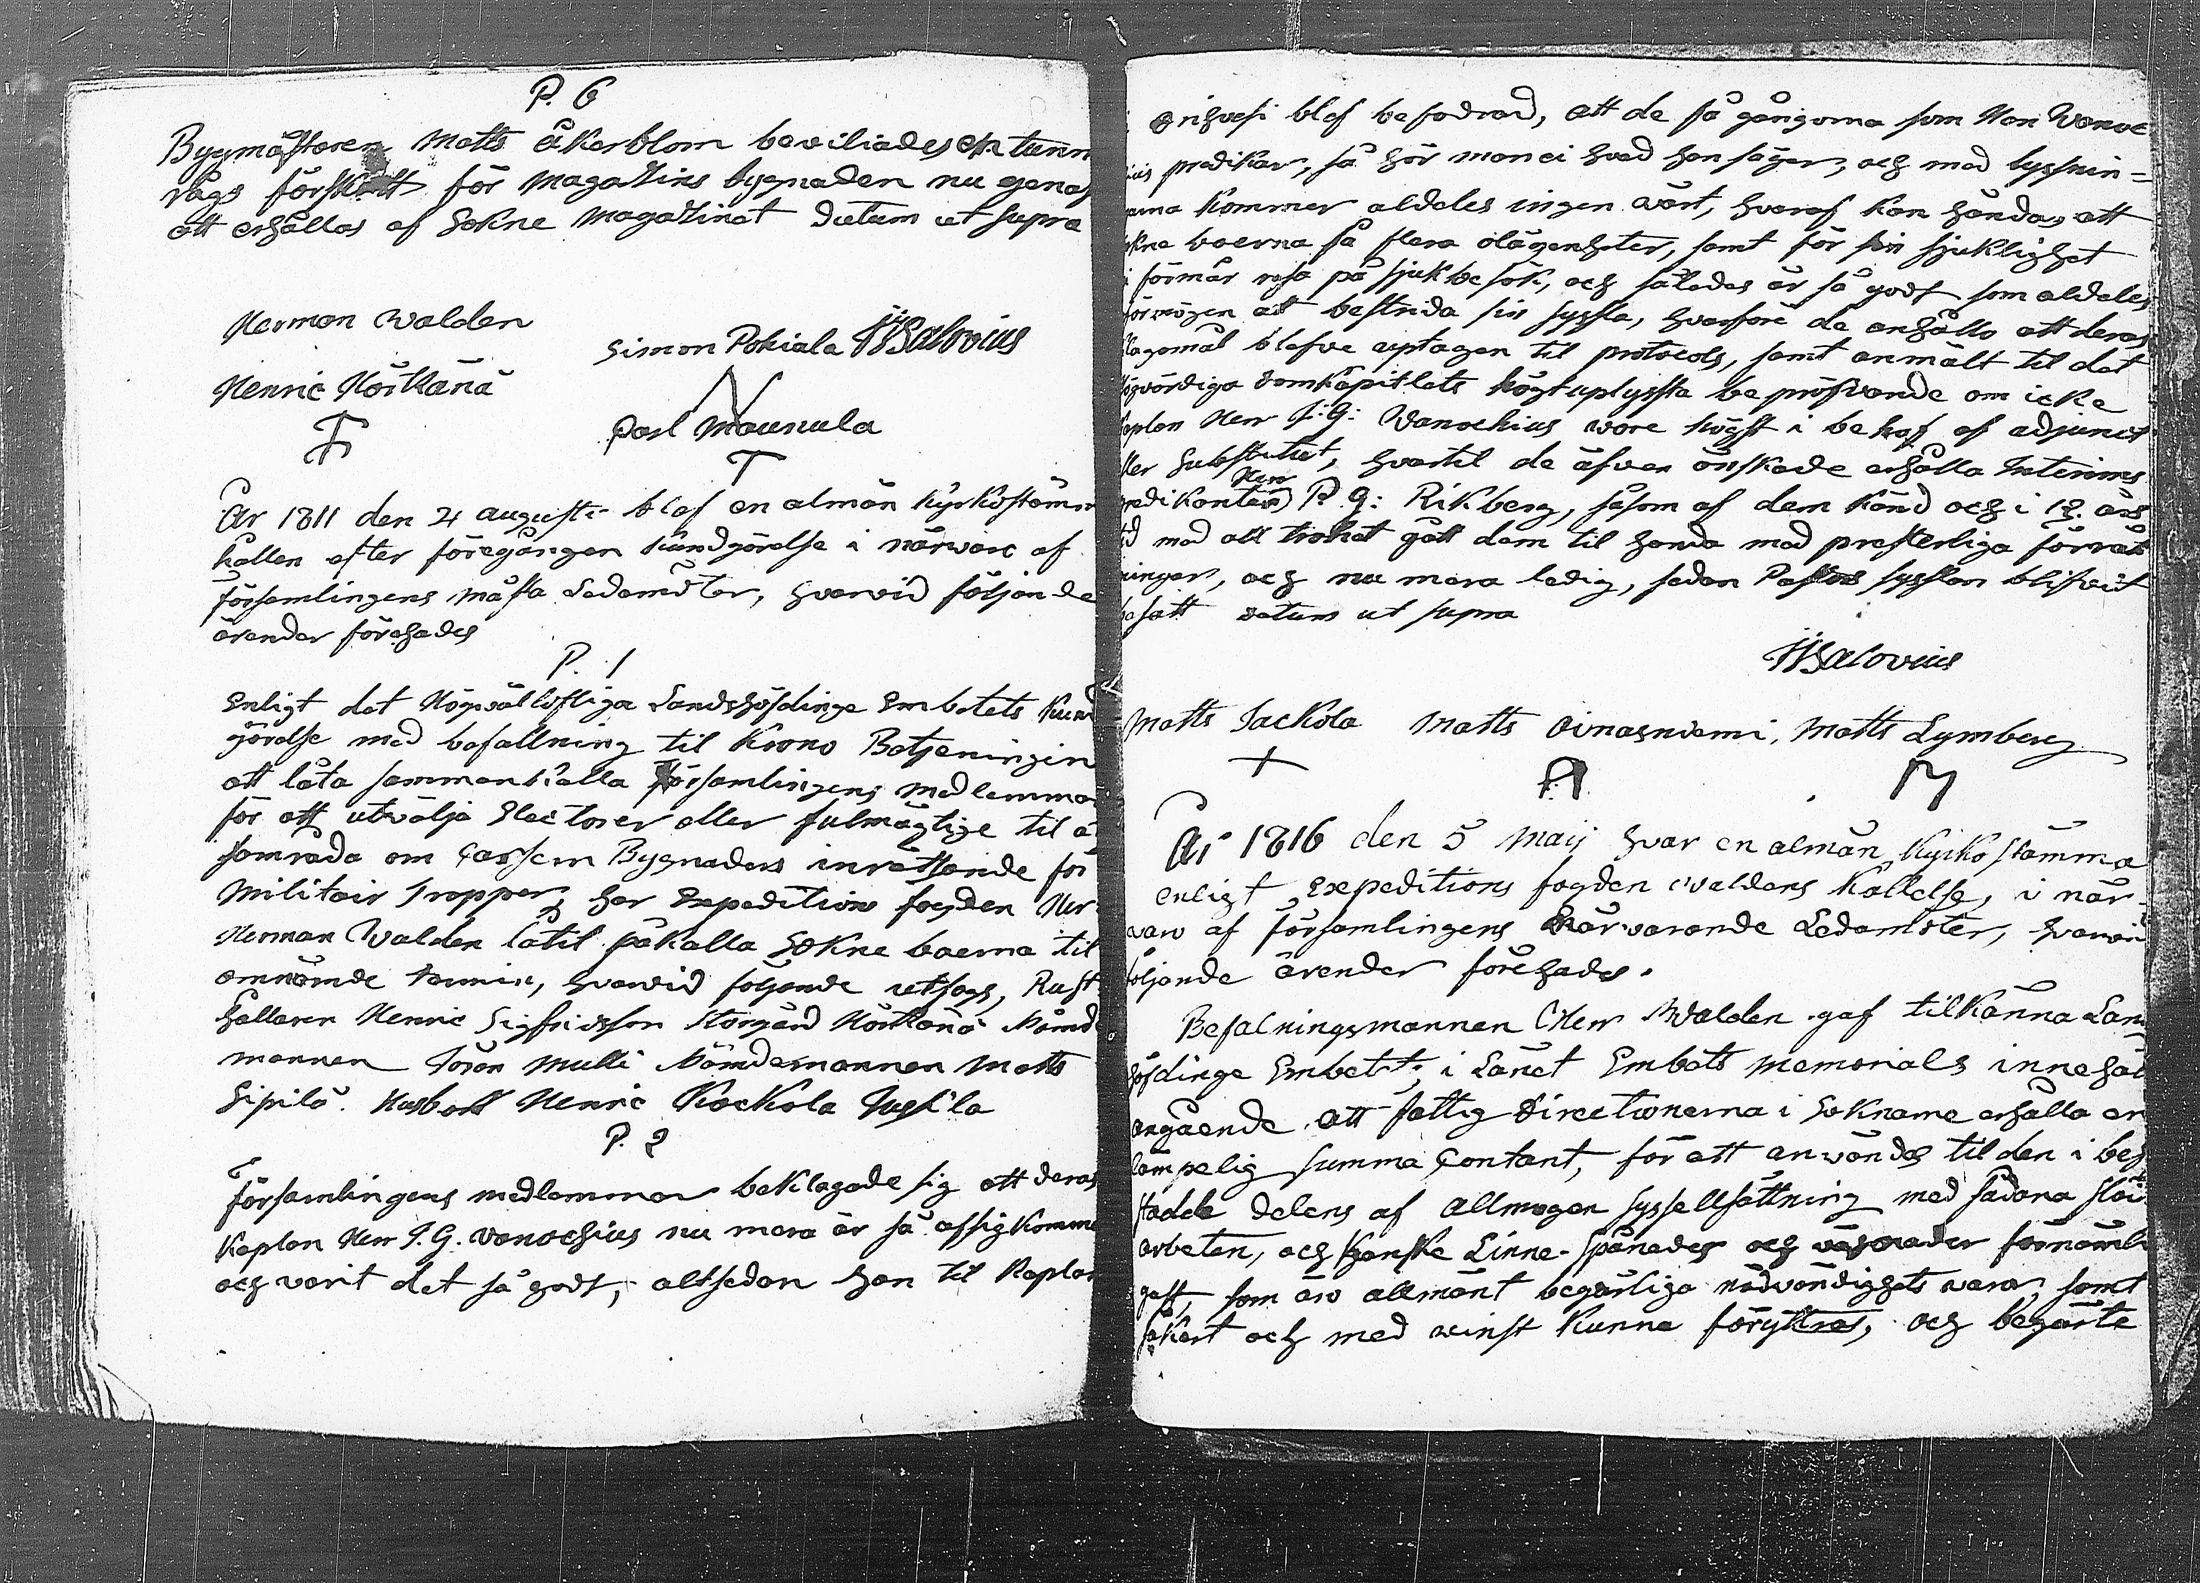 P. 6
Bygmästaren Matts Åkerblom beviliades en tunn
rågs förskått för Magazins bygnaden nu genas
att erhållas af Sokne Magazinet datum ut supra
Herman Walden
Simon Pokiala JHSalovius
Henric Hörkänä
Carl Maunula
År 1811 den 4 augusti blef en almän kyrkostäm
hållen efter föregången kundgörelse i närvaro af
församlingens mästa Ledamöter, hvarvid följande
ärender förehades
P. 1
Enligt det Högvällofliga Landshöfdinge Embetets kund
görelse med befallning til Krono Betjeningen
att låta samman kalla församlingens medlemmar
för att utvälja Electorer eller fulmägtige til at
samråda om Cassern Bygnaders inrättande för
Militair tropper, har Expeditions fogden Herr
Herman Walden låtit påkalla Sokne boerna til
omnämde termin, hvarvid följande utsågs, Rust
hållaren Henric Sigfridsson Storgård Hörkänä Nämd
mannen Jöran Mulli Nämdemannen Matts
Sipilä. Husbon Henric Kockola Jussila
P. 2
Församlingens medlemmar beklagade sig att deras
Kaplan Herr J. G. Wanochius nu mera är så afsigkomme
och varit det så godt, altsedan han til Kaplan
Erihvesi blef befodrad, att de få gångorna som Herr Wanoc
ius predikar, så hör man ei hvad han säger, och med lyssnin=
arna kommer aldeles ingen vart, hvaraf kan hända, att
okne boerna få flera olägenheter, samt för sin sjuklighet
i förmår resa på sjukbesök, och således är så godt som aldeles
örmögen att bestrida sin syssla, hvarföre de anhållo att deras
lagomål blefve uptagen til protocols, samt anmält til det
ögvördiga domkapitlets högtuplyssta bepröfvande om icke
aplan Herr J: G: Wanochius vore högst i behof af adjunct
ller Substitut, hvartil de äfven önskade erhålla Interims
Herr
redikanten P. G: Rikberg, såsom af dem känd och i 12 års
id med all trohet gått dem til handa med presterliga förrät
ningar, och nu mera ledig, sedan Pastors sysslan blifvit
besatt datum ut supra
JHSalovius
Matts Jackola Matts Oinasniemi, Matts Lymberg
År 1816 den 5 Maij hvar en almän Kyrko stämma
enligt Expeditions fogden Waldens kallelse, i när=
varo af församlingens närvarande Ledamöter, hvarvid
följande ärender förehades.
Befalningsmannen Herr Walden gaf tilkänna Lan
höfdinge Embetets i Länet Embets Memorials innehål
angående att fattig Directionerna i Soknarne erhålla en
lämpelig summa Contant, för att användas til den i bes
stadde delens af Allmogen sysselsättning med sådana slöi
arbeten, och kanske Linne-Spånader och väfnader förnämli
gast, som äro allmänt begärliga nödvändighets varor, samt
säkert och med vinst kunna föryttras, och begärte